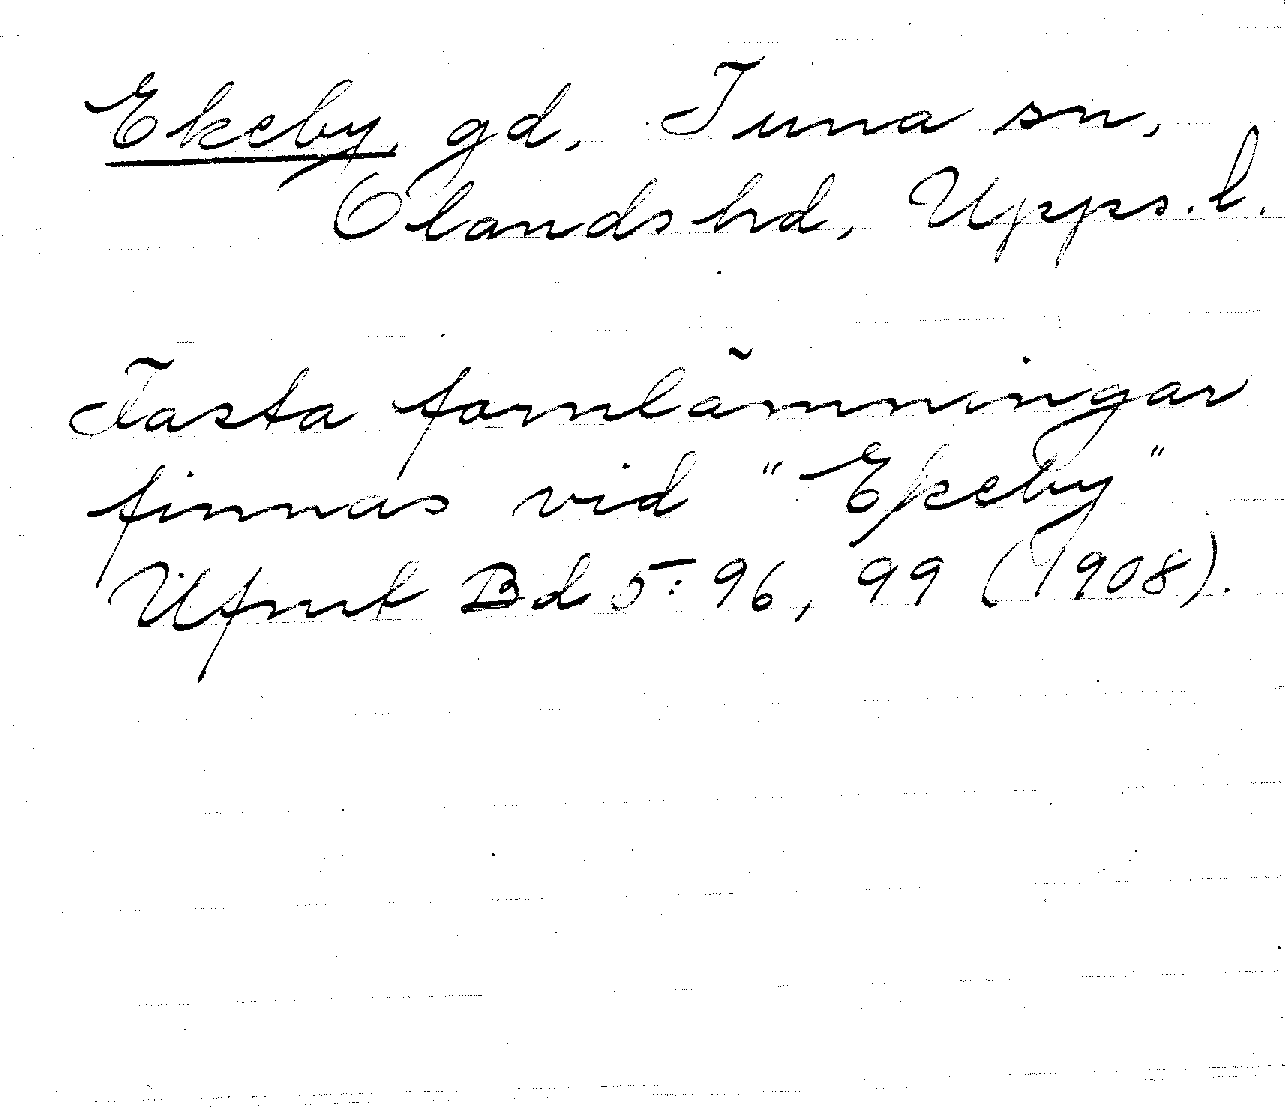 Ekeby, gd, Tuna sn,
Olands hd, Upps. l.
Fasta fornlämningar
finnas vid "Ekeby"
Ufmt Bd 5: 96, 99 (1908).